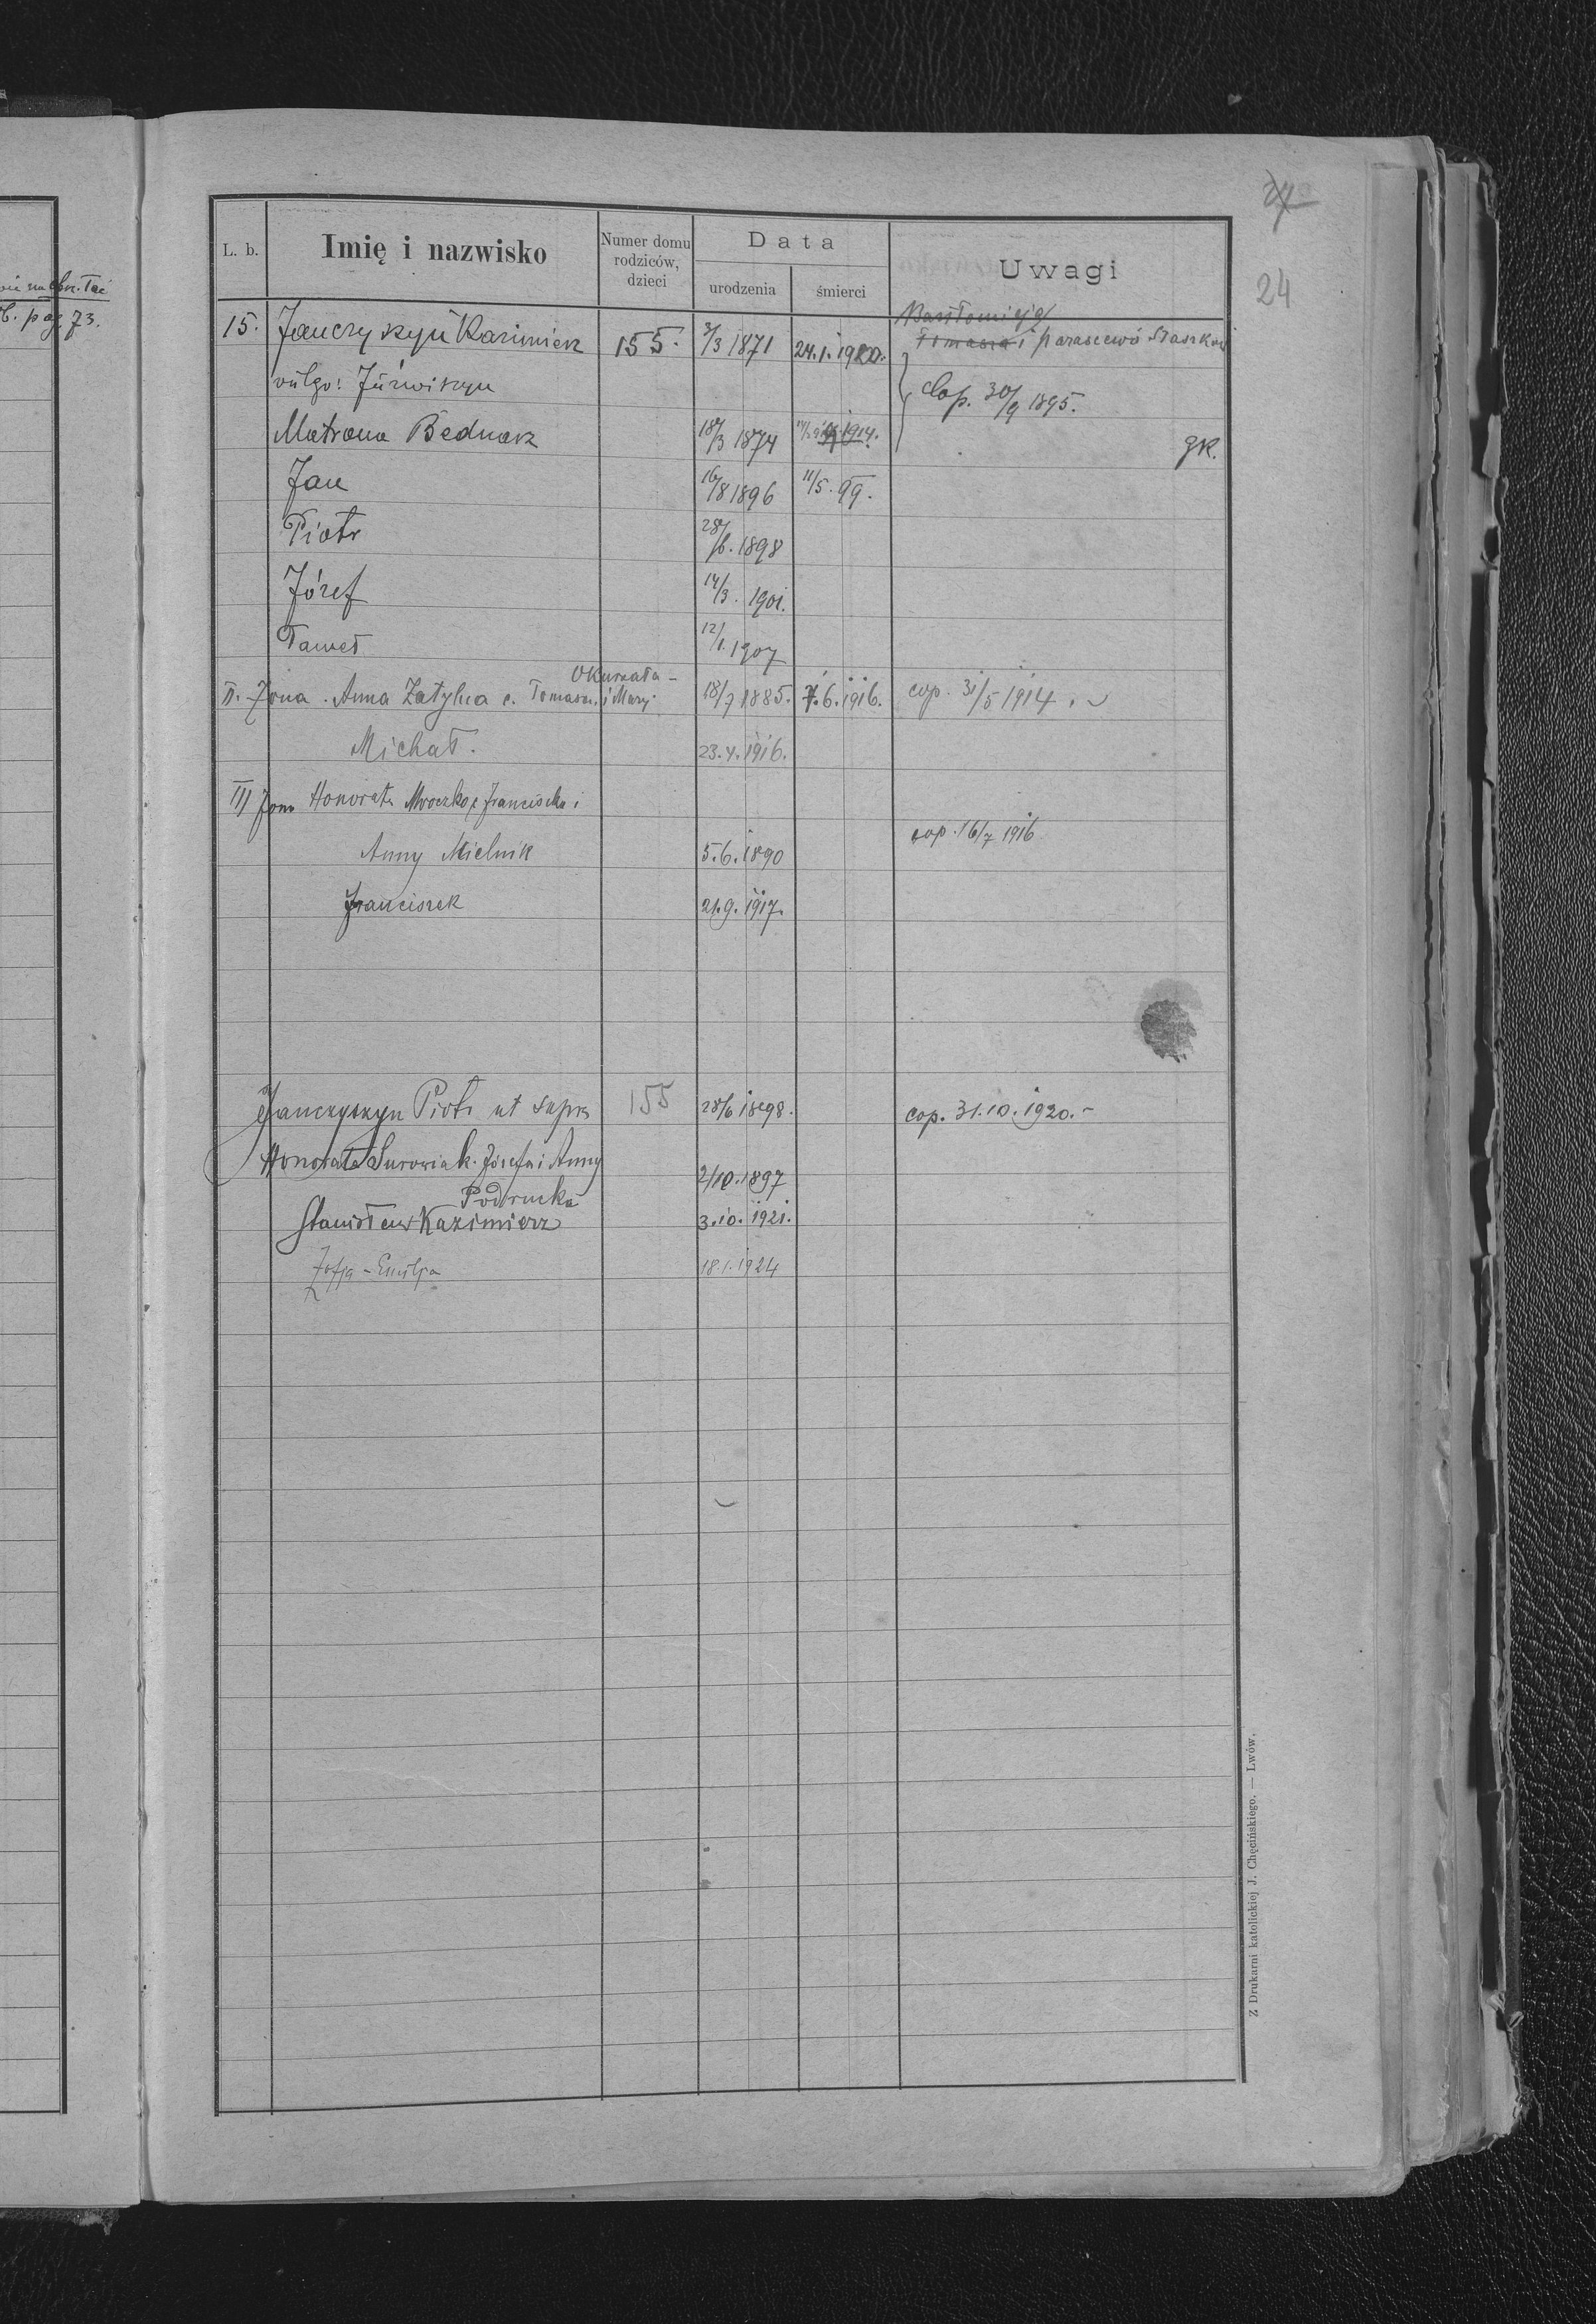 24
L. b. Imię i nazwisko Numer domu rodziców, dzieci Data urodzenia śmierci Uwagi
b. pag. 73.
Bartłomieja
15. Janczyszyn Kazimierz 155. 3/3 1871 24.1.1920. Tomasza i Parascewó Staszków
vulgo: Jurwiszyn Cop. 30/9 1895.
Matrona Bednarz 18/3 1874 1914. gk.
Jan 16/8 1896 11/5. 99.
Piotr 28/6. 1898
Józef 14/3. 1901.
Paweł 12/1. 1907
Okurzała -
II. Żona. Anna Zatylna c. Tomasza i Mary 18/7 1885. 7.6.1916. cop. 31/5 1914.
Michał. 23.4.1916.
III Żona Honorata Mroczko c Franciszka i
Anny Mielnik 5.6.1890 cop. 16/7 1916
Franciszek 21.9.1917.
Janczyszyn Piotr ut supra 155 28/6 1898. cop. 31.10.1920.-
Honorata Surowiak. Józefa i Anny 2/10.1897
Podrucka
Stanisław Kazimierz 3.10.1921.
Zofja-Emilja 18.1.1924
Z Drukarni katolickiej J. Chęcińskiego. — Lwów.